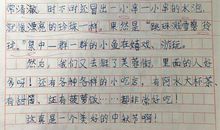 常清澈,时不时还冒出一小串一小串的水泡
犹像漂亮的珍珠一样。果然是“跳珠溅雪碧玲
珑”泉中一群一群的小鱼在嬉戏、游玩。
然后,我们又去了芙蓉街,里面的人好
多呀!还有各种各样的小吃店,有阿水大杯茶、
有甜筒、还有菠萝饭……都非常好吃!
这真是一个美好的中秋节啊!